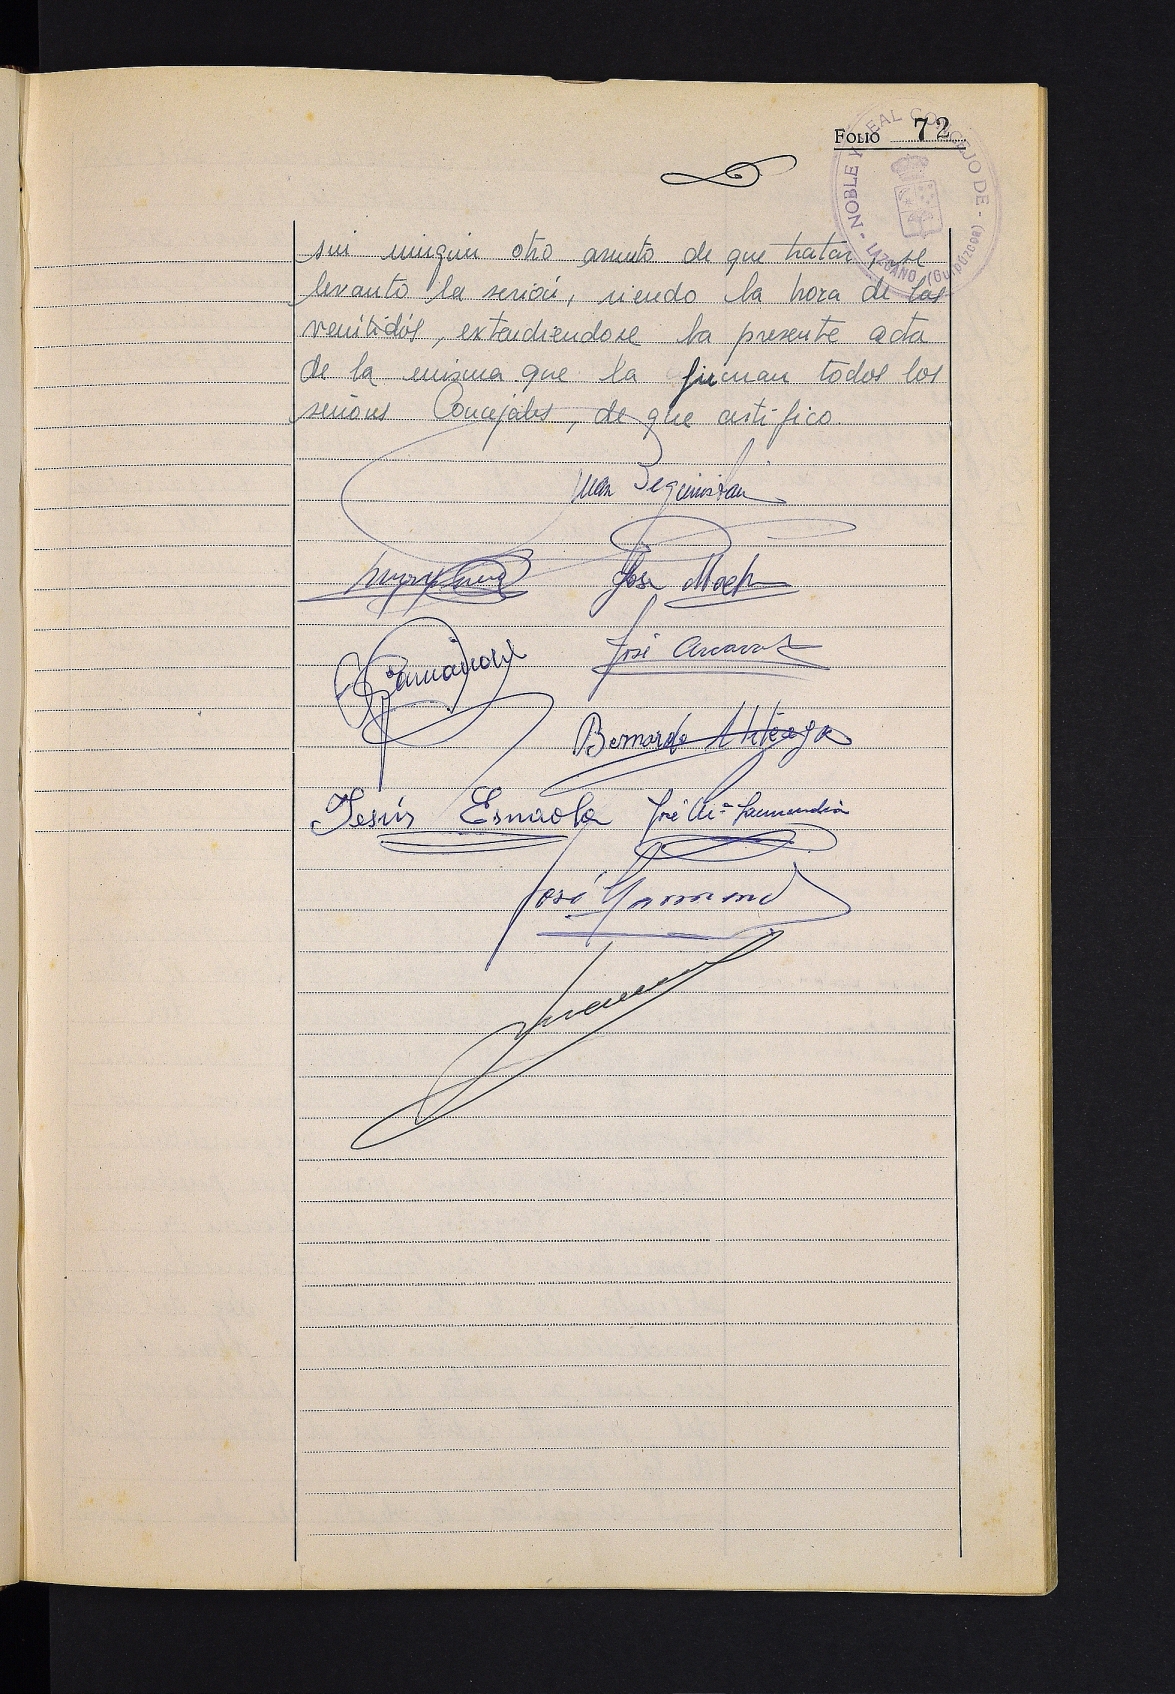 FOLIO 72
NOBLE Y LEAL CONCEJO DE - LAZCANO (GUIPÚZCOA) -
sin ningun otro asunto de que tratar, se
levanto la sesión, siendo la hora de las
venitidós, extendiendose la presente acta
de la misma que la firman todos los
señores Concejales, de que certifico.
Juan
José
José
Bernardo
Jesús Esnaola José Mª
José